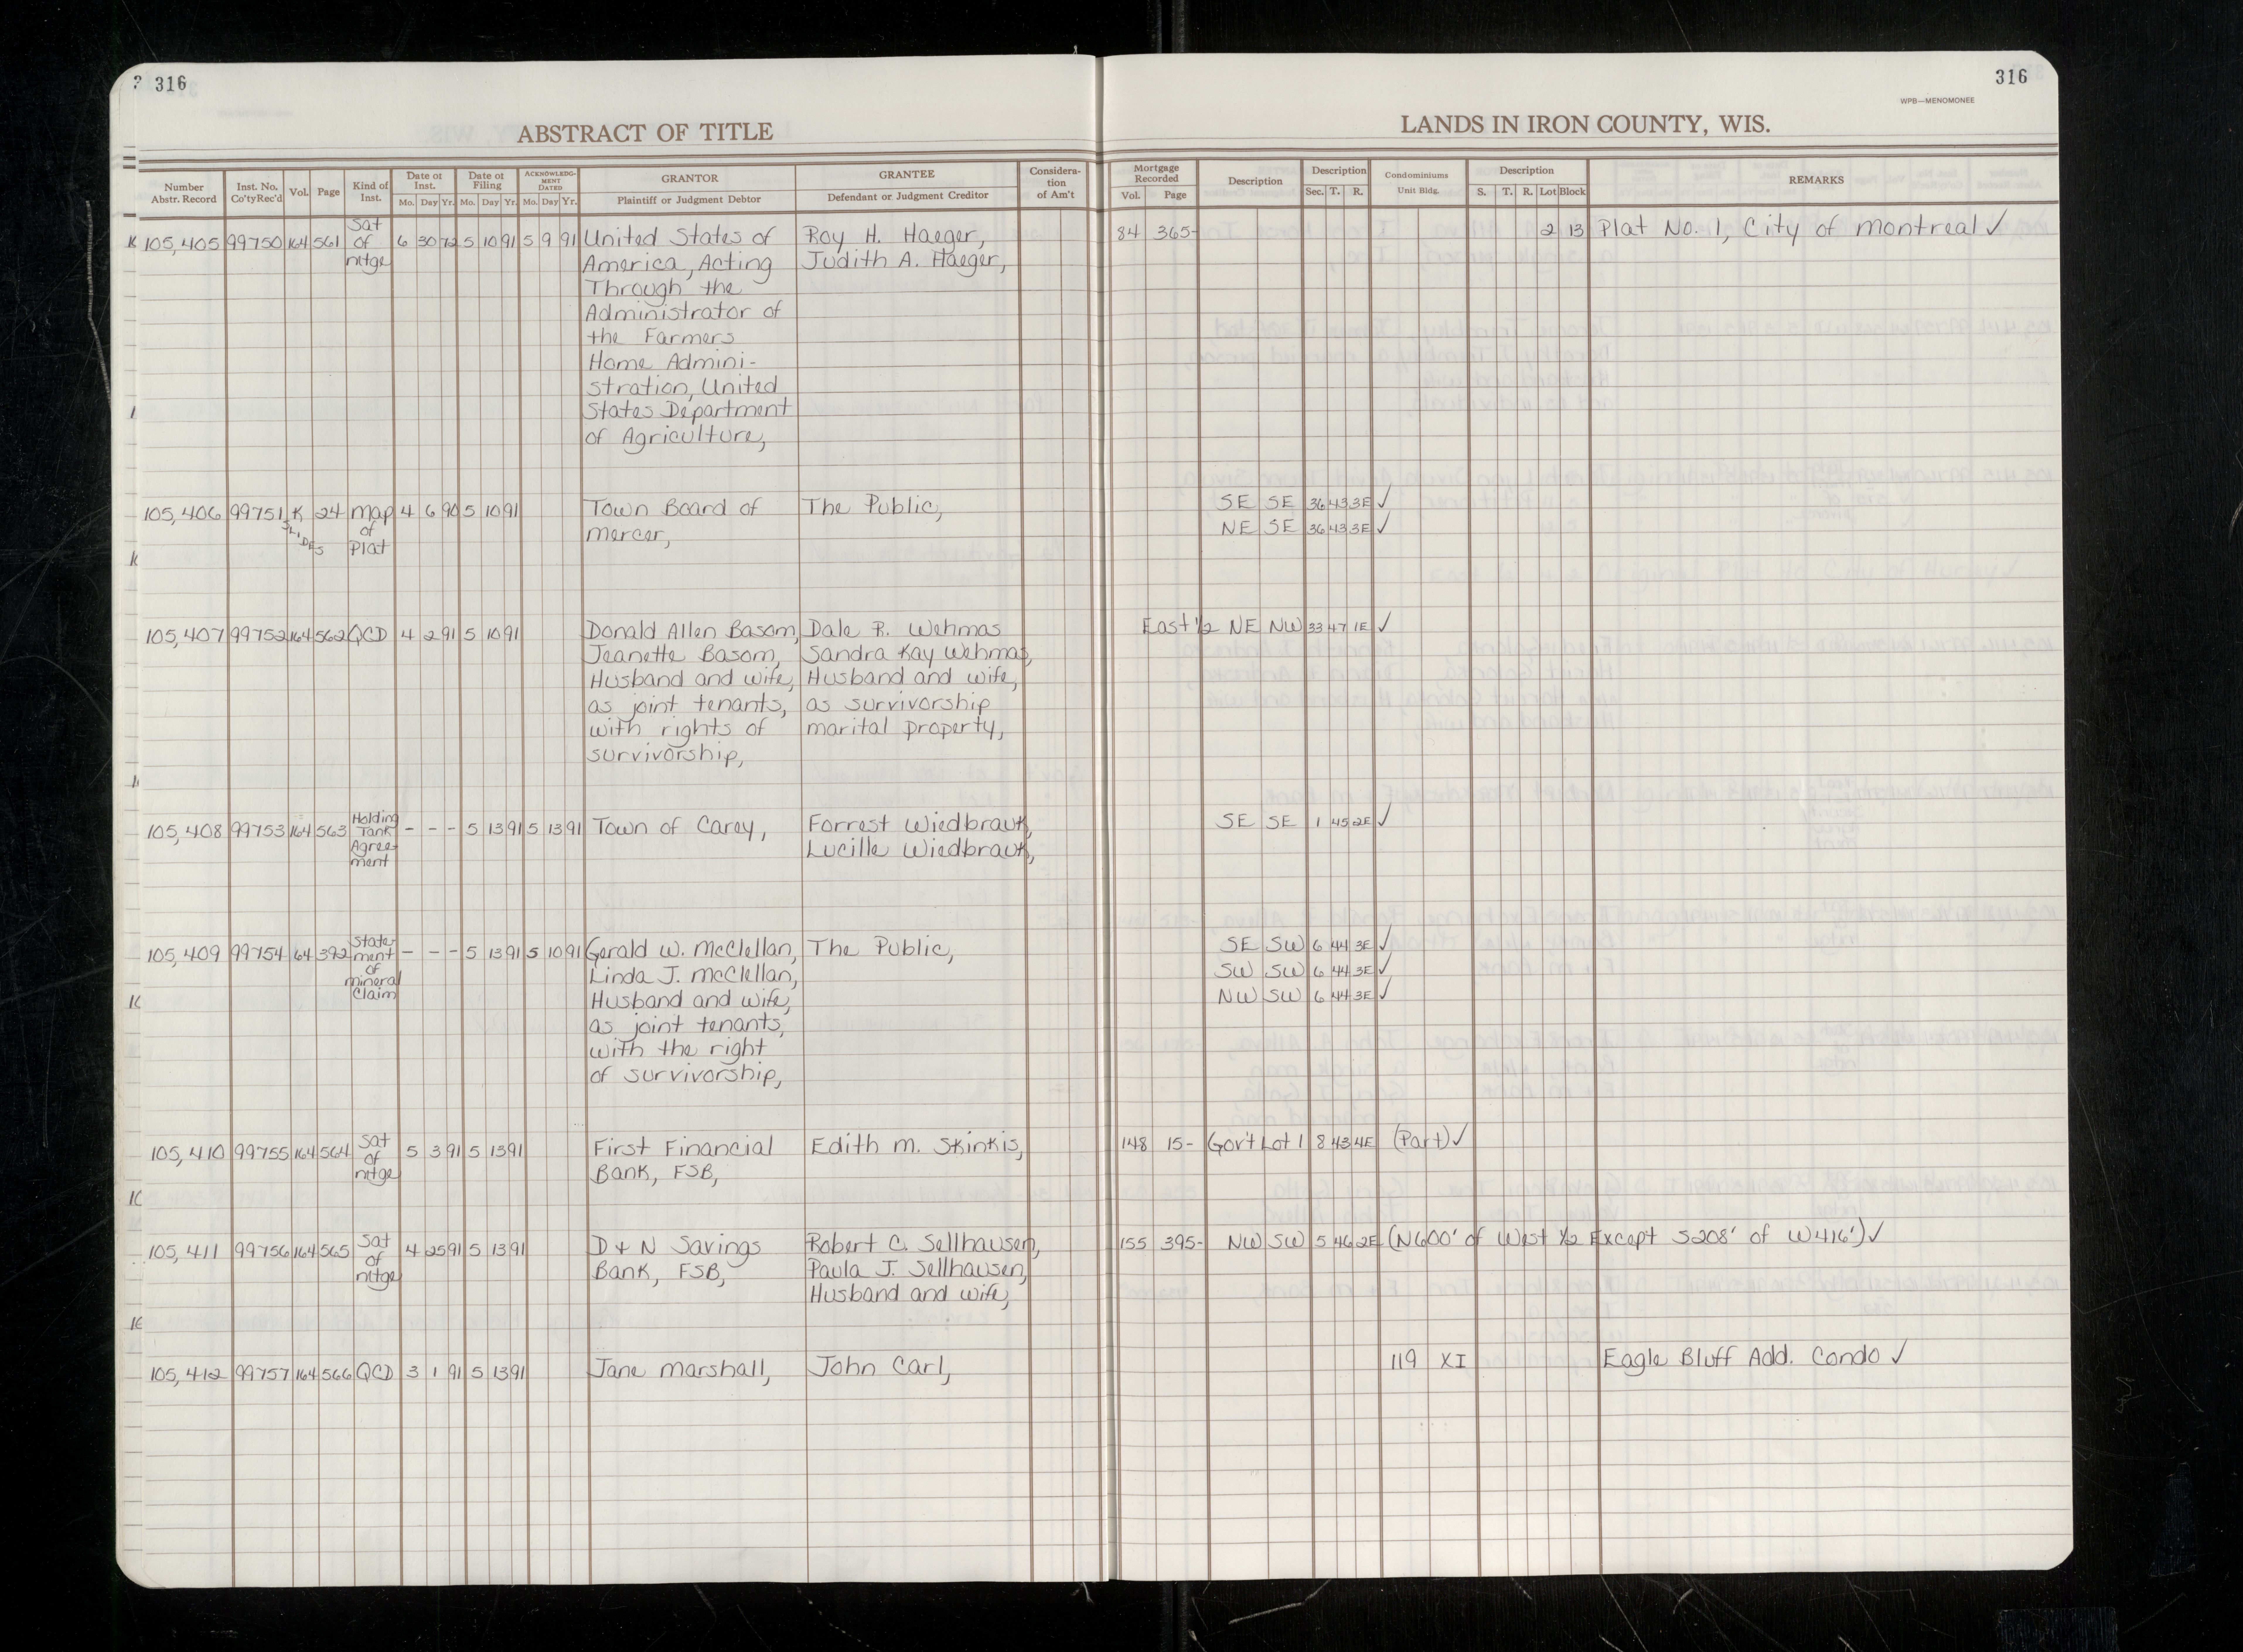 316
316
WPB—MENOMONEE
ABSTRACT OF TITLE
LANDS IN IRON COUNTY, WIS.
Number Abstr. Record
Inst. No. Co'ty Rec'd
Vol.
Page
Kind of Inst.
Date of Inst.
Mo. Day Yr.
Date of Filing
Mo. Day Yr.
ACKNOWLEDGMENT DATED
Mo. Day Yr.
GRANTOR
Plaintiff or Judgment Debtor
GRANTEE
Defendant or Judgment Creditor
Consideration of Am't
Mortgage Recorded
Vol. Page
Description
Description
Sec. T. R.
Condominiums
Unit Bldg.
Description
S. T. R. Lot Block
REMARKS
105,405 99750 164 561 Sat of mtge 6 30 72 5 10 91 5 9 91 United States of Roy H. Haeger, 84 365- 2 13 Plat No. 1, City of Montreal ✓
America, Acting Judith A. Haeger,
Through the
Administrator of
the Farmers
Home Admini-
stration, United
States Department
of Agriculture,
105,406 99751 K SLIDES 24 Map of Plat 4 6 90 5 10 91 Town Board of The Public, SE SE 36 43 3E ✓
Mercer, NE SE 36 43 3E ✓
105,407 99752 164 562 QCD 4 2 91 5 10 91 Donald Allen Basom, Dale R. Wehmas East ½ NE NW 33 47 1E ✓
Jeanette Basom, Sandra Kay Wehmas,
Husband and wife, Husband and wife,
as joint tenants, as survivorship
with rights of marital property,
survivorship,
105,408 99753 164 563 Holding Tank Agreement - - - 5 13 91 5 13 91 Town of Carey, Forrest Wiedbrauk, SE SE 1 45 2E ✓
Lucille Wiedbrauk,
105,409 99754 64 392 Statement of Mineral Claim - - - 5 13 91 5 10 91 Gerald W. McClellan, The Public, SE SW 6 44 3E ✓
Linda J. McClellan, SW SW 6 44 3E ✓
Husband and wife, NW SW 6 44 3E ✓
as joint tenants,
with the right
of survivorship,
105,410 99755 164 564 Sat of mtge 5 3 91 5 13 91 First Financial Edith M. Skinkis, 148 15- Gov't Lot 1 8 43 4E (Part) ✓
Bank, FSB,
105,411 99756 164 565 Sat of mtge 4 25 91 5 13 91 D + N Savings Robert C. Sellhausen, 155 395- NW SW 5 46 2E (N600' of West ½ Except S208' of W416') ✓
Bank, FSB, Paula J. Sellhausen,
Husband and wife,
105,412 99757 164 566 QCD 3 1 91 5 13 91 Jane Marshall, John Carl, 119 XI Eagle Bluff Add. Condo ✓